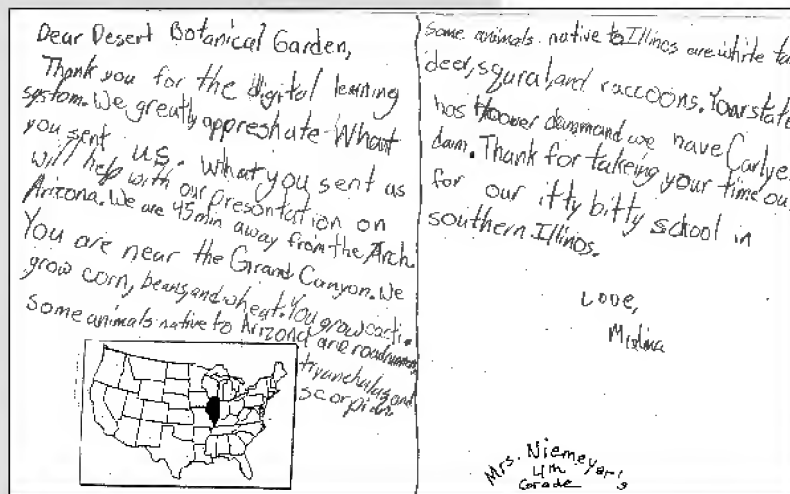 Dear Desert Botanical Garden,
Thank you for the digital learning
system. We greatly appreshate What
you sent us. What you sent us
will help with our presontation on
Arizona. We are 45 min away from the Arch.
You are near the Grand Canyon. We
grow corn, beans, and wheat. You grow cacti.
Some animals native to Arizona are
tranchulas and
scorpion
Some animals native to Illinos are white
deer, squral, and raccoons. Your state
has Hoover damm and we have Carlye
dam. Thank for takeing your time ou
for our itty bitty school in
southern Illinos.
Love,
Mrs. Niemeyer's
4th
Grade